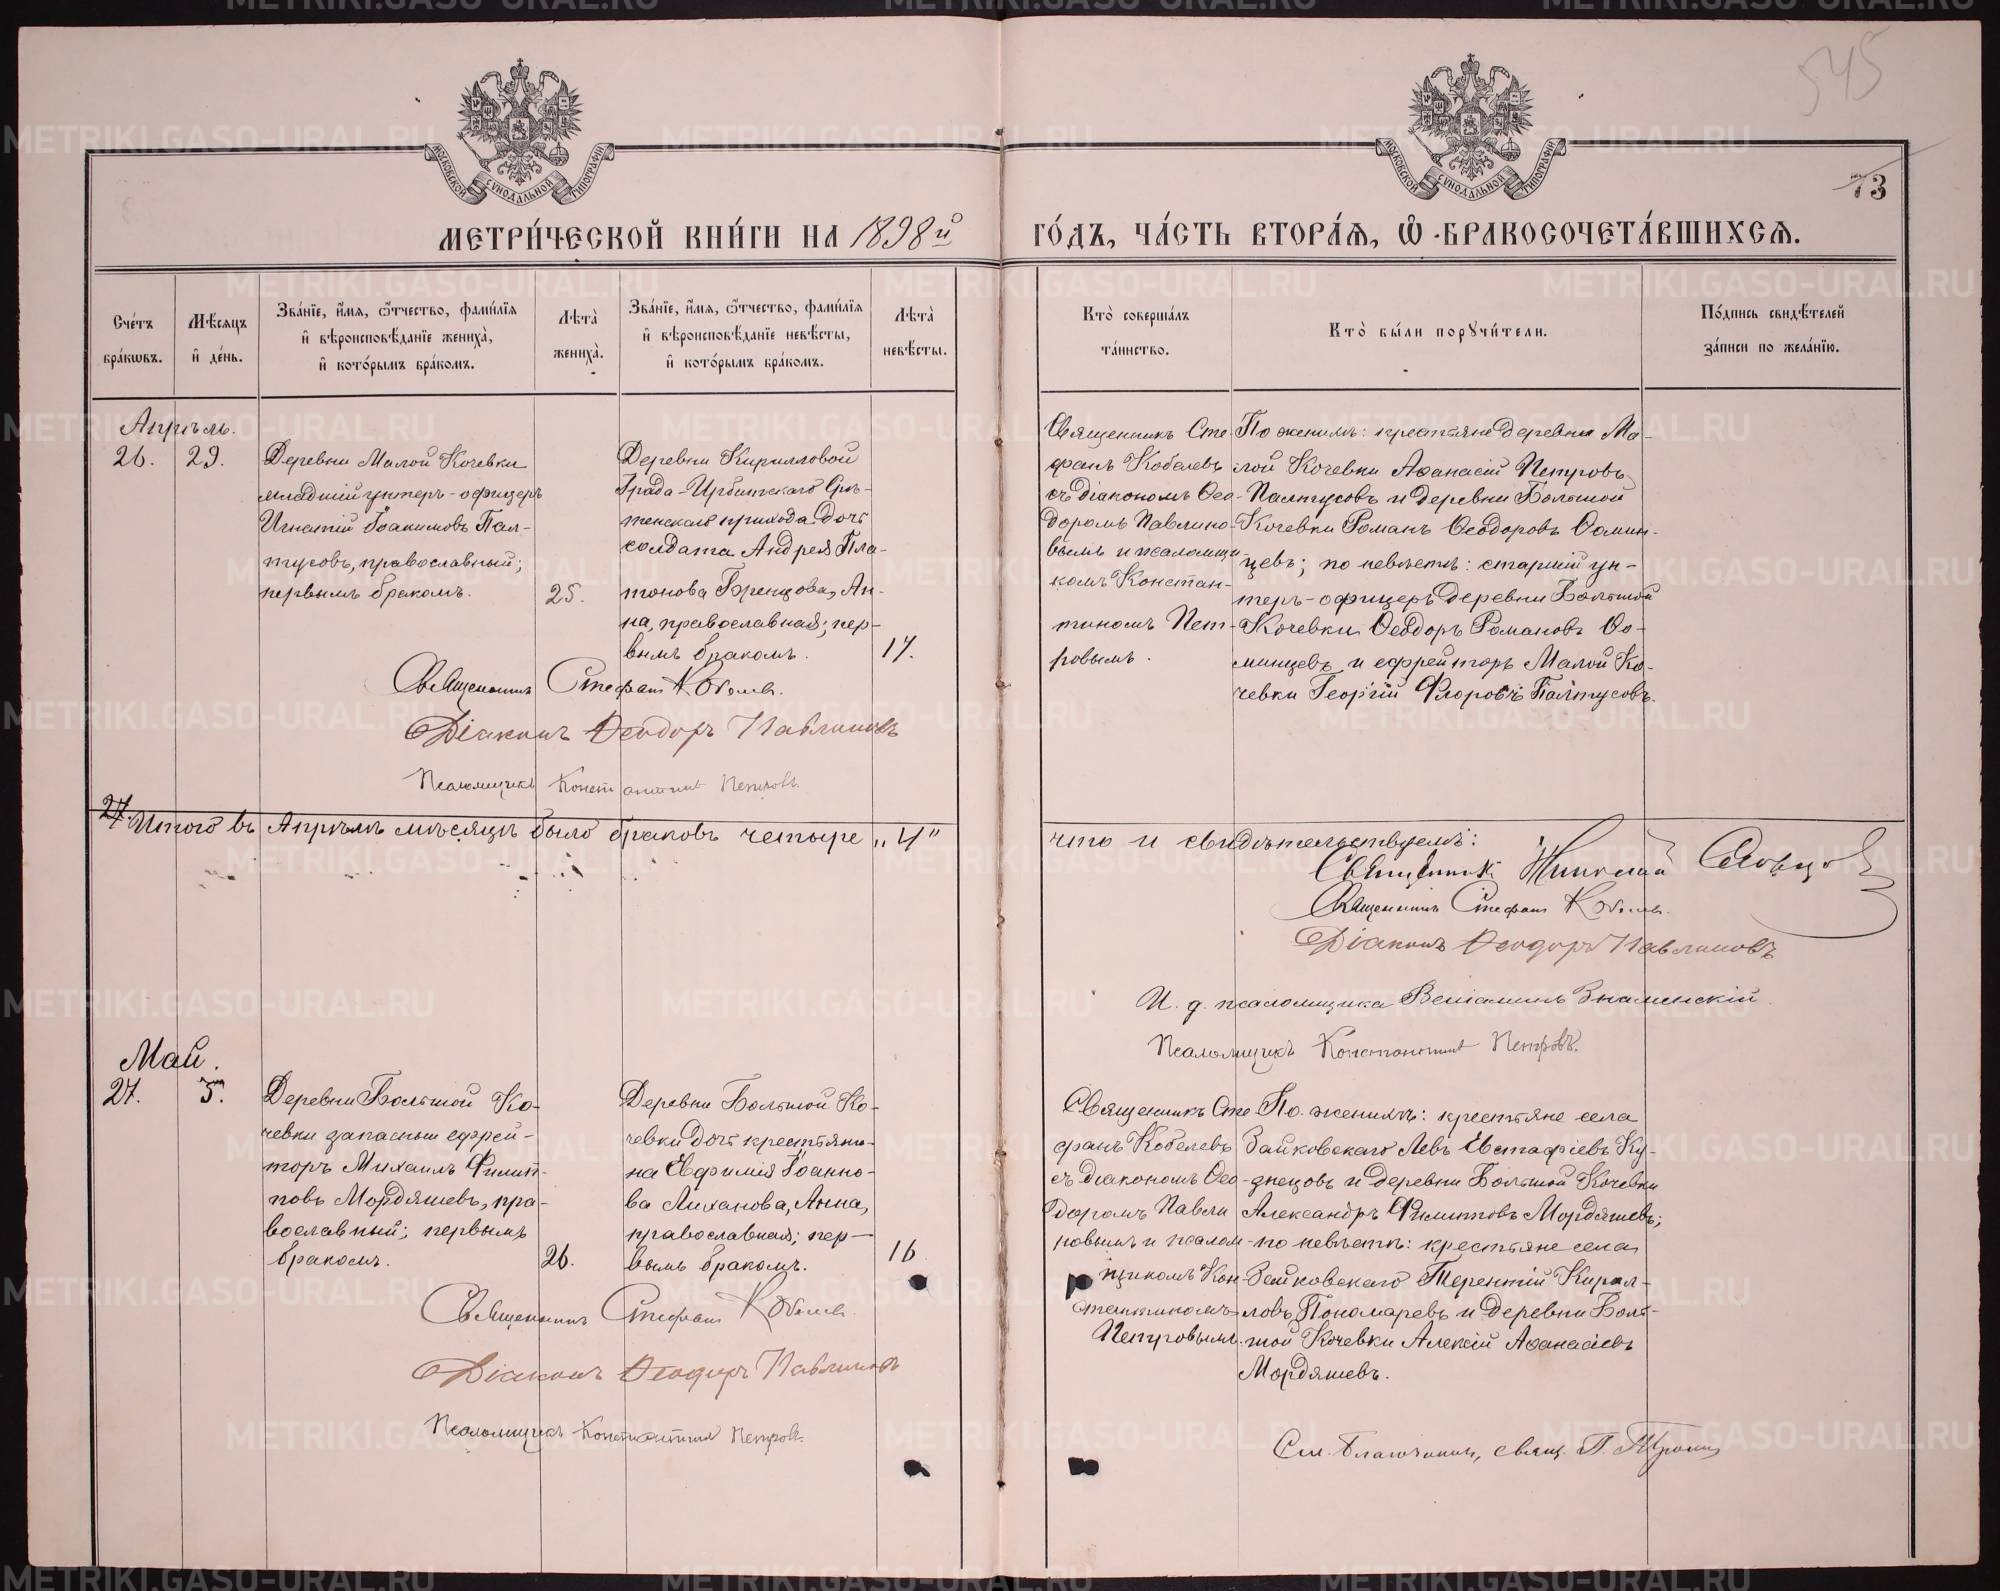 545
73
МОСКОВСКОЙ СѴНОДАЛЬНОЙ ТИПОГРАФІИ
МОСКОВСКОЙ СѴНОДАЛЬНОЙ ТИПОГРАФІИ
МЕТРИ́ЧЕСКОЙ КНИ́ГИ НА 1898й ГО́ДЪ, ЧА́СТЬ ВТОРА́Ѧ, Ѡ БРАКОСОЧЕТА́ВШИХСѦ.
Сче́тъ
бра́кѡвъ.
Мѣ́сѧцъ
и҆ де́нь.
Зва́нїе, и҆́мѧ, ѻ҆́тчество, фами́лїѧ
и҆ вѣроисповѣ́данїе жениха̀,
и҆ кото́рымъ бра́комъ.
Лѣта̀
жениха̀.
Зва́нїе, и҆́мѧ, ѻ҆́тчество, фами́лїѧ
и҆ вѣроисповѣ́данїе невѣ́сты,
и҆ кото́рымъ бра́комъ.
Лѣта̀
невѣ́сты.
Кто̀ соверша́лъ
та́инство.
Кто̀ бы́ли порꙋчи́тели.
По́дпись свидѣ́телей
за́писи по жела́нїю.
Апрѣль.
26.
29.
Деревни Малой Кочевки
младшій унтеръ-офицеръ
Игнатій Іоакимовъ Пал-
тусовъ, православный;
первымъ бракомъ.
25.
Деревни Кирилловой
Града-Ирбитскаго Срѣ-
тенскаго прихода дочь
солдата Андрея Пла-
тонова Бренцова, Ан-
на, православная; пер-
вымъ бракомъ.
17.
Священникъ Сте-
фанъ Кобелевъ
съ діакономъ Ѳео-
доромъ Павлино-
вымъ и псаломщи-
комъ Констан-
тиномъ Пет-
ровымъ.
По женихѣ: крестьяне деревни Ма-
лой Кочевки Аѳанасій Петровъ
Палтусовъ и деревни Большой
Кочевки Романъ Ѳеодоровъ Ѳомин-
цевъ; по невѣстѣ: старшій ун-
теръ-офицеръ деревни Большой
Кочевки Ѳеодоръ Романовъ Ѳо-
минцевъ и ефрейторъ Малой Ко-
чевки Георгій Флоровъ Палтусовъ.
Священникъ Стефанъ Кобелевъ.
Діаконъ Ѳеодоръ Павлиновъ
Псаломщикъ Константинъ Петровъ.
27.
Итого въ Апрѣлѣ мѣсяцѣ было браковъ четыре „4"
что и свидѣтельствуемъ:
Священникъ Николай Словцовъ
Священникъ Стефанъ Кобелевъ.
Діаконъ Ѳеодоръ Павлиновъ
И. д. псаломщика Веніаминъ Знаменскій.
Псаломщикъ Константинъ Петровъ.
Май.
27.
5.
Деревни Большой Ко-
чевки запасный ефрей-
торъ Михаилъ Филип-
повъ Мордяшевъ, пра-
вославный; первымъ
бракомъ.
26.
Деревни Большой Ко-
чевки дочь крестьяни-
на Евфимія Іоанно-
ва Лиханова, Анна,
православная; пер-
вымъ бракомъ.
16
Священникъ Сте-
фанъ Кобелевъ
съ діакономъ Ѳео-
доромъ Павли-
новымъ и псалом-
щикомъ Кон-
стантиномъ
Петровымъ.
По женихѣ: крестьяне села
Зайковскаго Левъ Евстафіевъ Ку-
знецовъ и деревни Большой Кочевки
Александръ Филипповъ Мордяшевъ;
по невѣстѣ: крестьяне села
Зайковскаго Терентій Кирил-
ловъ Пономаревъ и деревни Боль-
шой Кочевки Алексій Аѳанасіевъ
Мордяшевъ.
Священникъ Стефанъ Кобелевъ.
Діаконъ Ѳеодоръ Павлиновъ
Псаломщикъ Константинъ Петровъ.
См. Благочинный, свящ. П.
METRIKI.GASO-URAL.RU